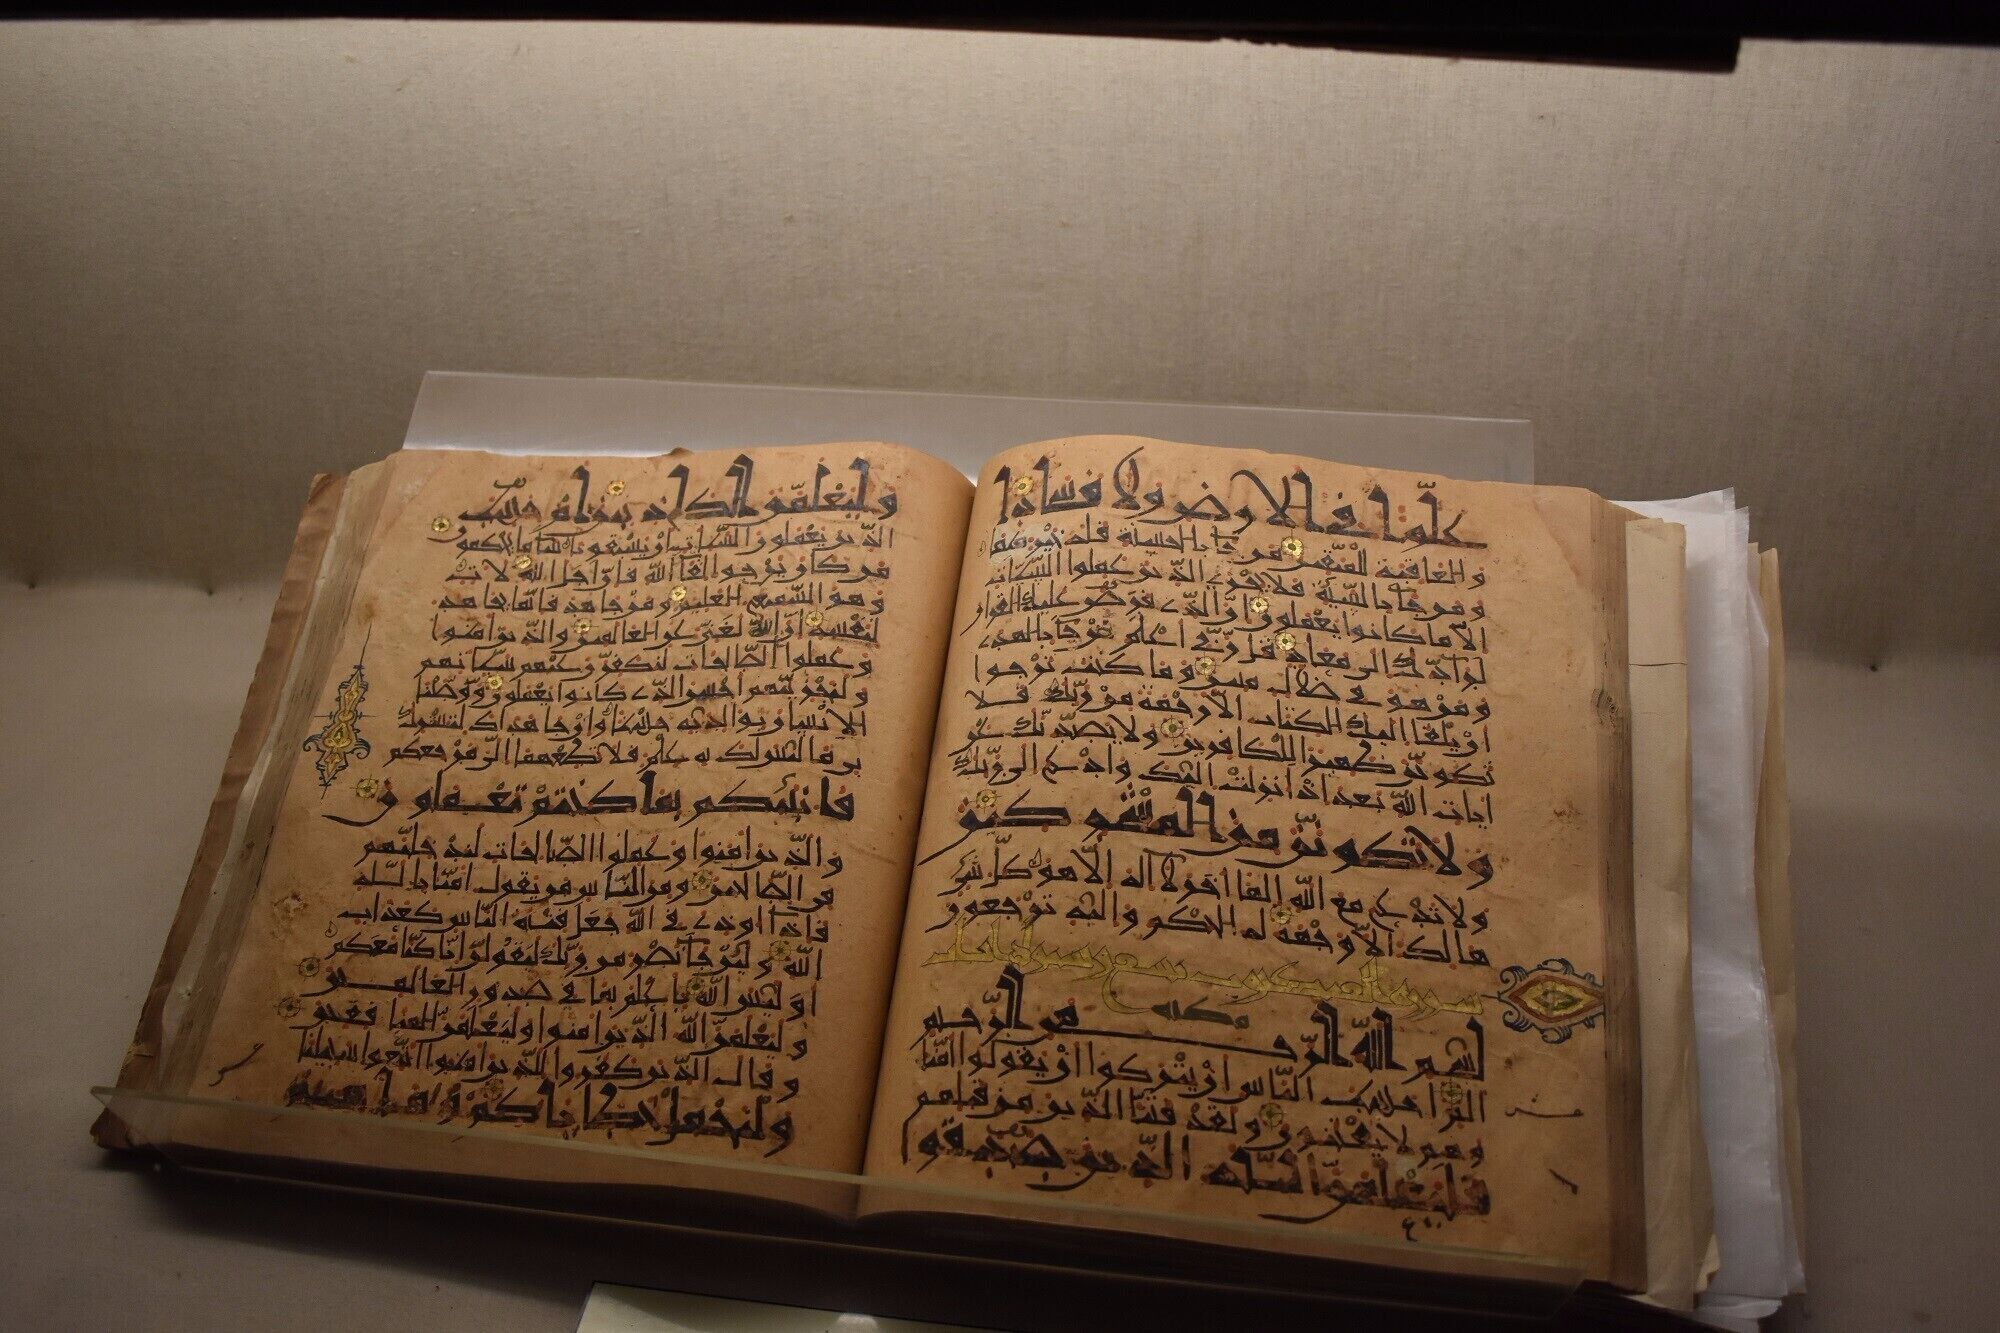 علوا في الارض ولا فسادا
والعاقبة للمتقين من جاء بالحسنة فله خير منها
ومن جاء بالسيئة فلا يجزى الذين عملوا السيئات
الا ما كانوا يعملون ان الذي فرض عليك القران
لرادك الى معاد قل ربي اعلم من جاء بالهدى
ومن هو في ضلال مبين وما كنت ترجوا
ان يلقى اليك الكتاب الا رحمة من ربك فلا
تكونن ظهيرا للكافرين ولا يصدنك عن
ايات الله بعد اذ انزلت اليك وادع الى ربك
ولا تكونن من المشركين
ولا تدع مع الله الها اخر لا اله الا هو كل شيء
هالك الا وجهه له الحكم واليه ترجعون
سورة العنكبوت تسع وستون اية
مكية
بسم الله الرحمن الرحيم
الم احسب الناس ان يتركوا ان يقولوا امنا
وهم لا يفتنون ولقد فتنا الذين من قبلهم
فليعلمن الله الذين صدقوا
وليعلمن الكاذبين ام حسب
الذين يعملون السيئات ان يسبقونا ساء ما يحكمون
من كان يرجوا لقاء الله فان اجل الله لات
وهو السميع العليم ومن جاهد فانما يجاهد
لنفسه ان الله لغني عن العالمين والذين امنوا
وعملوا الصالحات لنكفرن عنهم سيئاتهم
ولنجزينهم احسن الذي كانوا يعملون ووصينا
الانسان بوالديه حسنا وان جاهداك لتشرك
بي ما ليس لك به علم فلا تطعهما الي مرجعكم
فانبئكم بما كنتم تعملون
والذين امنوا وعملوا الصالحات لندخلنهم
في الصالحين ومن الناس من يقول امنا بالله
فاذا اوذي في الله جعل فتنة الناس كعذاب
الله ولئن جاء نصر من ربك ليقولن انا كنا معكم
اوليس الله باعلم بما في صدور العالمين
وليعلمن الله الذين امنوا وليعلمن المنافقين
وقال الذين كفروا للذين امنوا اتبعوا سبيلنا
ولنحمل خطاياكم وما هم